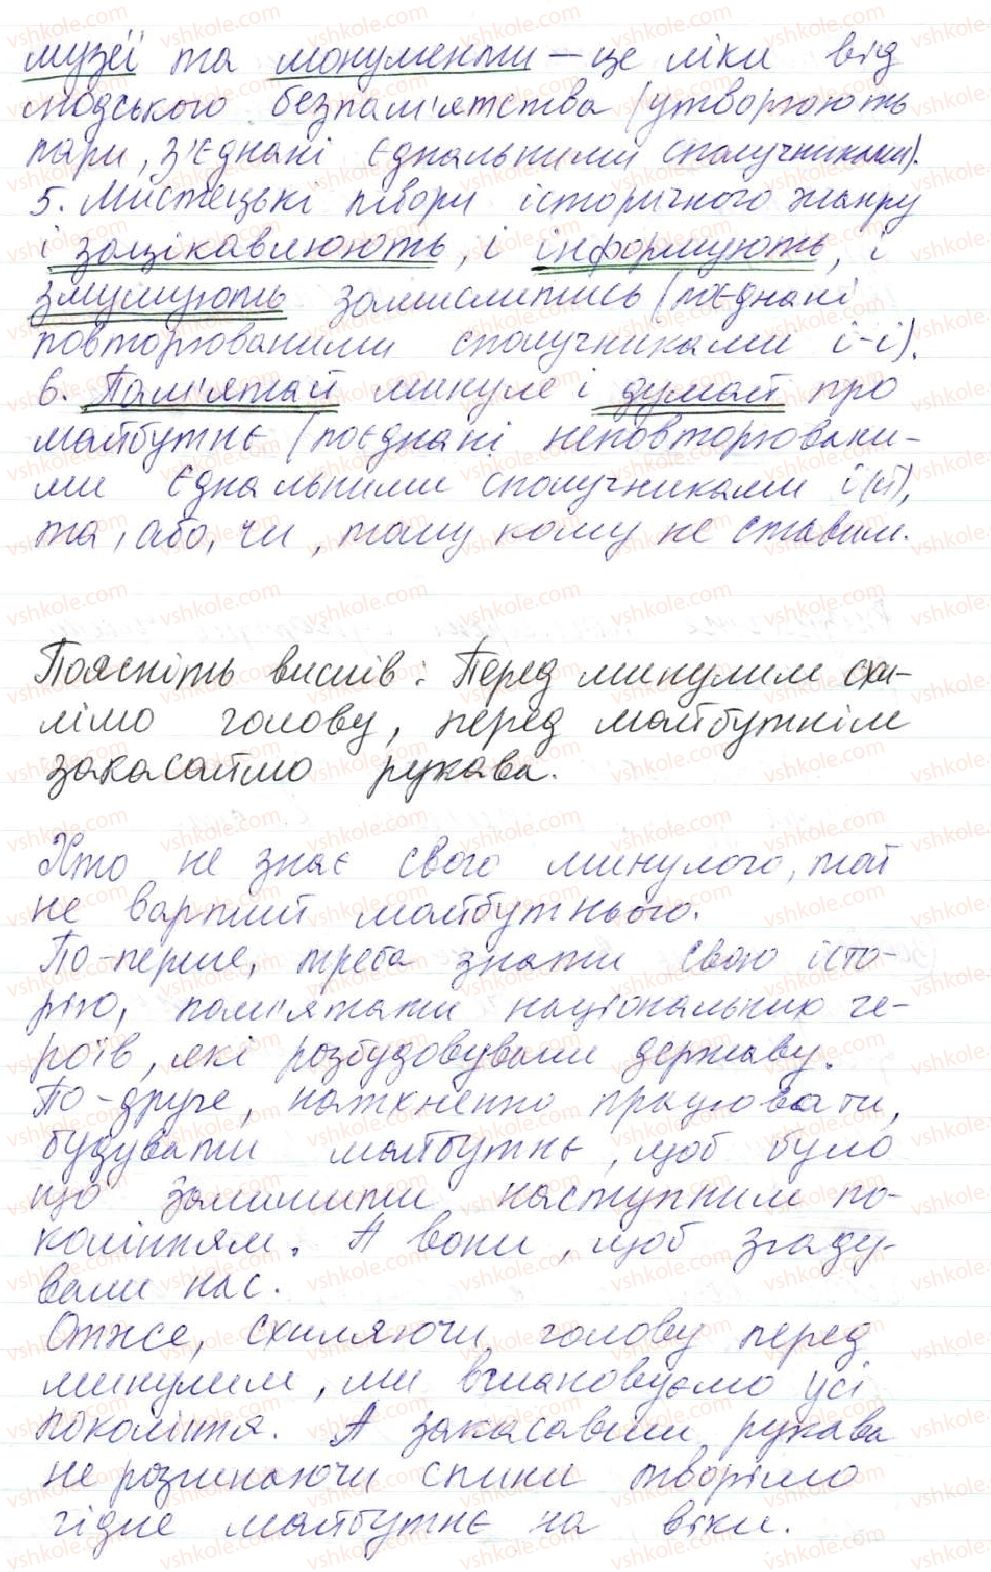 музеї та монументи – це ліки від
людського безпам'ятства (утворюють
пари, з'єднані єднальними сполучниками).
5. Мистецькі твори історичного жанру
і зацікавлюють, і інформують, і
змушують замислитись (поєднані
повторюваними сполучниками і-і).
6. Пам'ятай минуле і думай про
майбутнє (поєднані неповторювани-
ми єднальними сполучниками і(й),
та, або, чи, тому кому не ставим.
Поясніть вислів: Перед минулим схи-
лімо голову, перед майбутнім
закасаймо рукава.
Хто не знає свого минулого, той
не вартий майбутнього.
По-перше, треба знати свою істо-
рію, пам'ятати національних ге-
роїв, які розбудовували державу.
По-друге, натхненно працювати,
будувати майбутнє, щоб було
що залишити наступним по-
колінням. А вони, щоб згаду-
вали нас.
Отже, схиляючи голову перед
минулим, ми вшановуємо усі
покоління. А закасавши рукава
не розгинаючи спини творімо
гідне майбутнє на віки.
vshkole.com